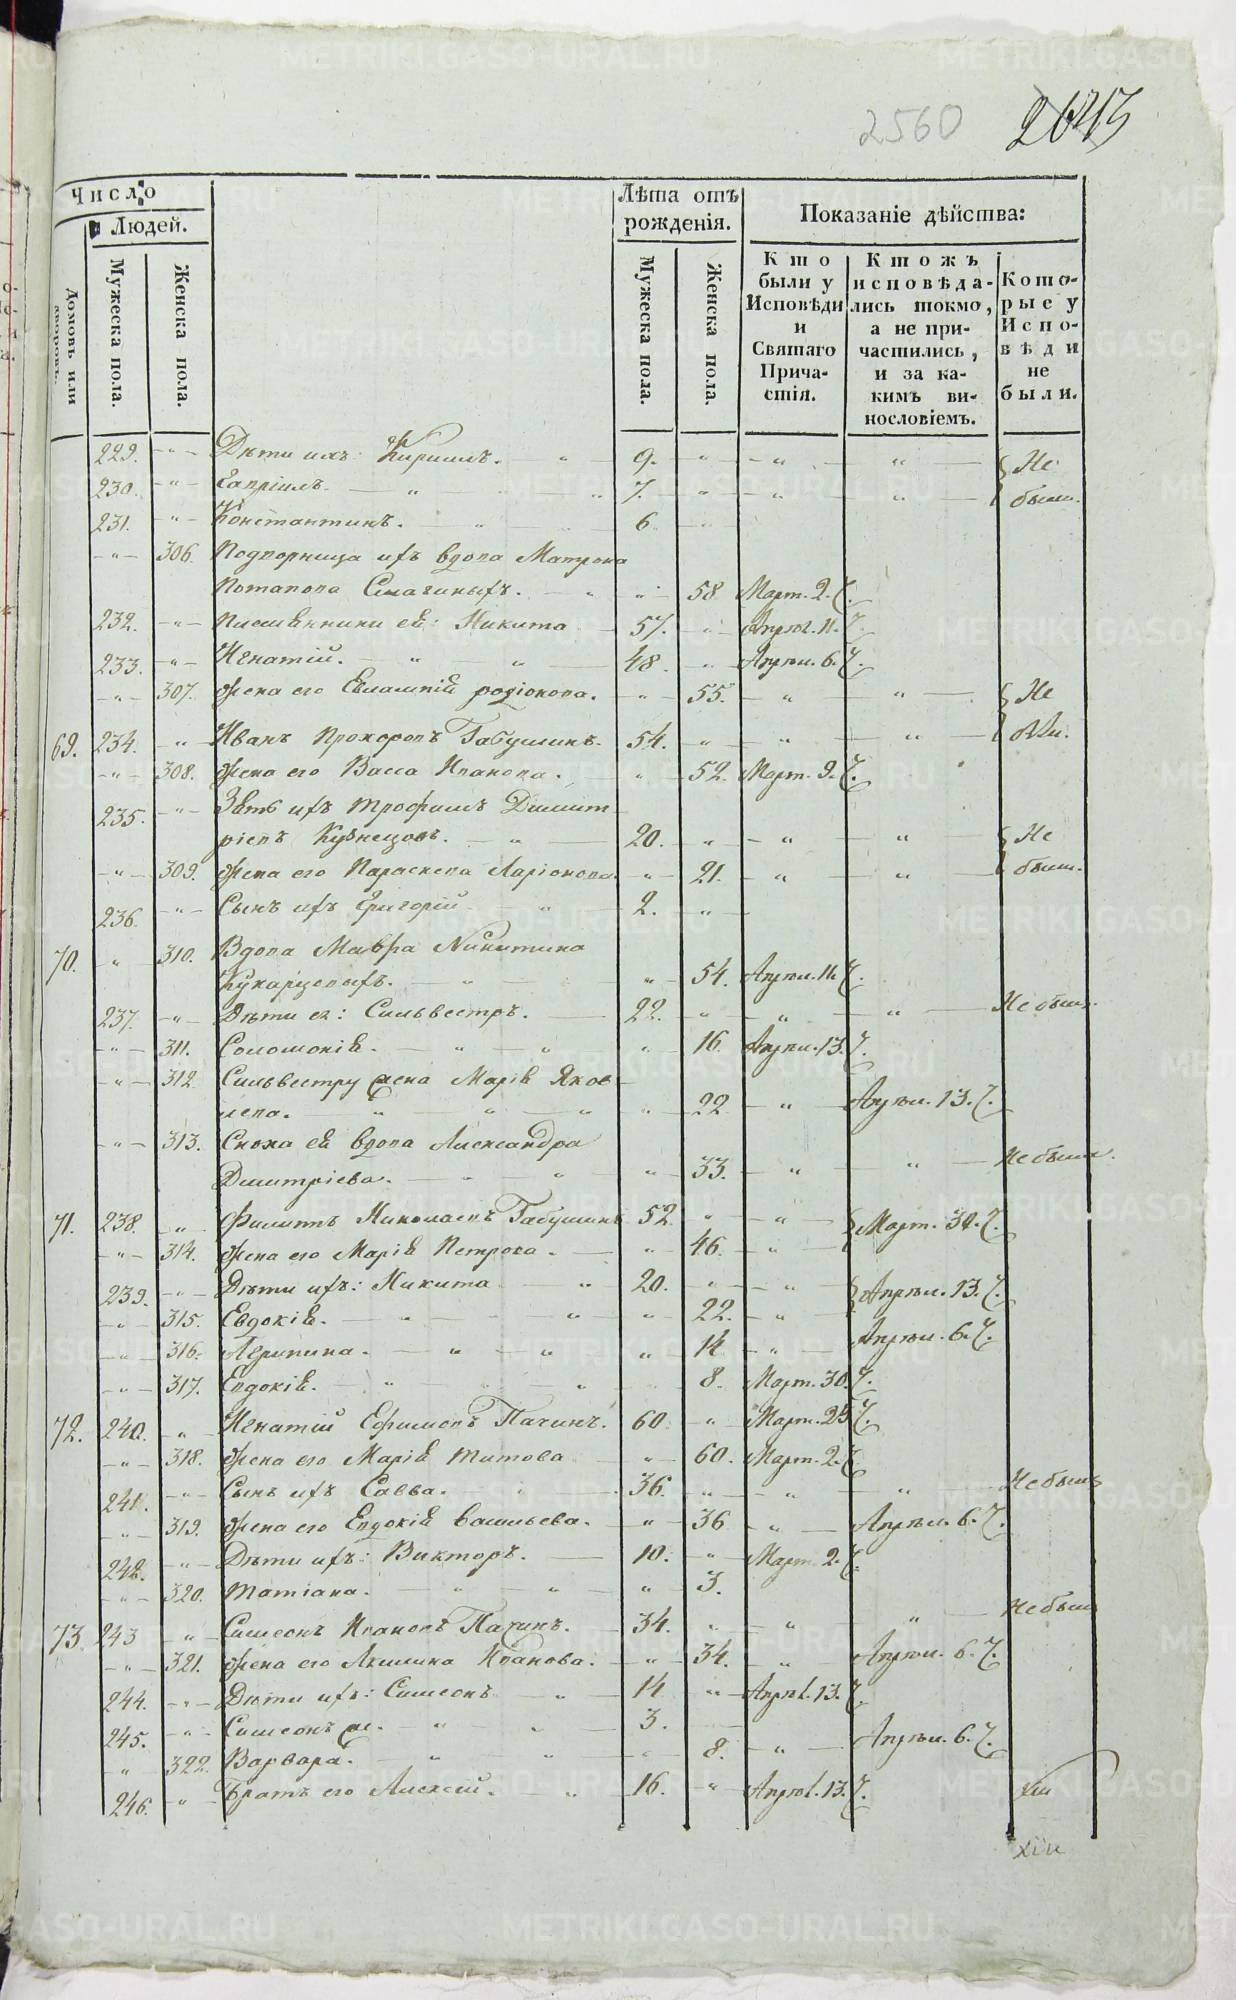 METRIKI.GASO-URAL.RU
2560
Число
Людей.
Домовъ или дворовъ.
Мужеска пола.
Женска пола.
Лѣта отъ рожденія.
Мужеска пола.
Женска пола.
Показаніе дѣйства:
Кто были у Исповѣди и Святаго Причастія.
Ктожъ исповѣдались токмо, а не причастились, и за какимъ винословіемъ.
Которые у Исповѣди не были.
229. Дѣти ихъ: Кириллъ. 9. Не
230. Гавріилъ. 7. были.
231. Константинъ. 6
306. Подворница ихъ вдова Матрона
Потапова Смагиныхъ. 58 Март. 2.
232. Племянники ея: Никита 57. Апрѣл. 11.
233. Игнатій. 48. Апрѣл. 6.
307. Жена его Евлампія родіонова. 55. Не
69. 234. Иванъ Прохоровъ Бабушкинъ. 54. были.
308. Жена его Васса Иванова. 52. Март. 9.
235. Зять ихъ трофимъ Димит
ріевъ Кузнецовъ. 20. Не
309. Жена его Параскева Ларіонова. 21. были.
236. Сынъ ихъ Григорій 2.
70. 310. Вдова Мавра Никитина
Кукарцовыхъ. 54. Апрѣл. 11.
237. Дѣти ея: Сильвестръ. 22. Не былъ.
311. Соломонія. 16. Апрѣл. 13.
312. Сильвестру жена Марія Яков
лева. 22 Апрѣл. 13.
313. Сноха ея вдова Александра
Димитріева. 33. Не была.
71. 238. Филиппъ Николаевъ Бабушкинъ 52. Март. 30.
314. Жена его Марія Петрова. 46.
239. Дѣти ихъ: Никита 20. Апрѣл. 13.
315. Евдокія. 22.
316. Агрипина. 14 Апрѣл. 6.
317. Евдокія. 8. Март. 30.
72. 240. Игнатій Ефимовъ Пачинъ. 60. Март. 25
318. Жена его Марія титова 60. Март. 2.
241. Сынъ ихъ Савва. 36. Не былъ
319. Жена его Евдокія васильева. 36 Апрѣл. 6.
242. Дѣти ихъ: Викторъ. 10. Март. 2.
320. татіана. 3.
73. 243 Симеонъ Ивановъ Пачинъ. 34. Не былъ
321. Жена его Акилина Иванова. 34. Апрѣл. 6.
244. Дѣти ихъ: Симеонъ 14 Апрѣл. 13.
245. Симеонъ м. 3.
322. Варвара. 8. Апрѣл. 6.
246. Братъ его Алексій. 16. Апрѣл. 13.